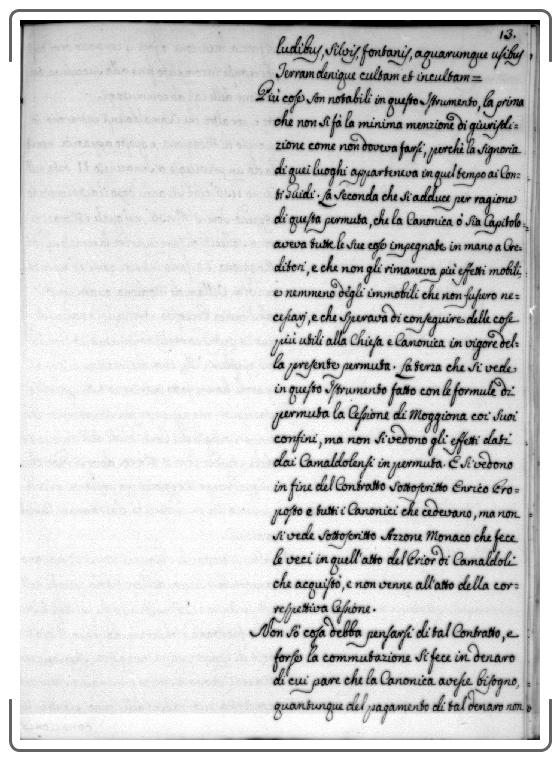 13.
ludibus, Silvis, fontanis, aquarumque usibus
Terram denique cultam et incultam =
Più cose son notabili in questo Istrumento, la prima
che non si fà la minima menzione di giurisdi=
zione come non doveva farsi, perchè la Signoria
di quei luoghi apparteneva in quel tempo ai Con=
ti Guidi. La Seconda che si adduce per ragione
di questa permuta, che la Canonica ò sia Capitolo
aveva tutte le sue cose impegnate in mano a Cre=
ditori, e che non gli rimaneva più effetti mobili,
e nemmeno degli immobili che non fussero ne=
cessarj, e che sperava di conseguire delle cose
più utili alla Chiesa e Canonica in vigore del=
la presente permuta. La terza che si vede
in questo Istrumento fatto con le formule di
permuta la Cessione di Moggiona coi suoi
confini, ma non si vedono gli effetti dati
dai Camaldolensi in permuta. E si vedono
in fine del Contratto sottoscritto Enrico Pro=
posto e tutti i Canonici che cedevano, ma non
si vede sottoscritto Azzone Monaco che fece
le veci in quell'atto del Prior di Camaldoli
che acquistò, e non venne all'atto della cor=
respettiva Cessione.
Non sò cosa debba pensarsi di tal Contratto, e
forse la commutazione si fece in denaro
di cui pare che la Canonica avesse bisogno,
quantunque del pagamento di tal denaro non